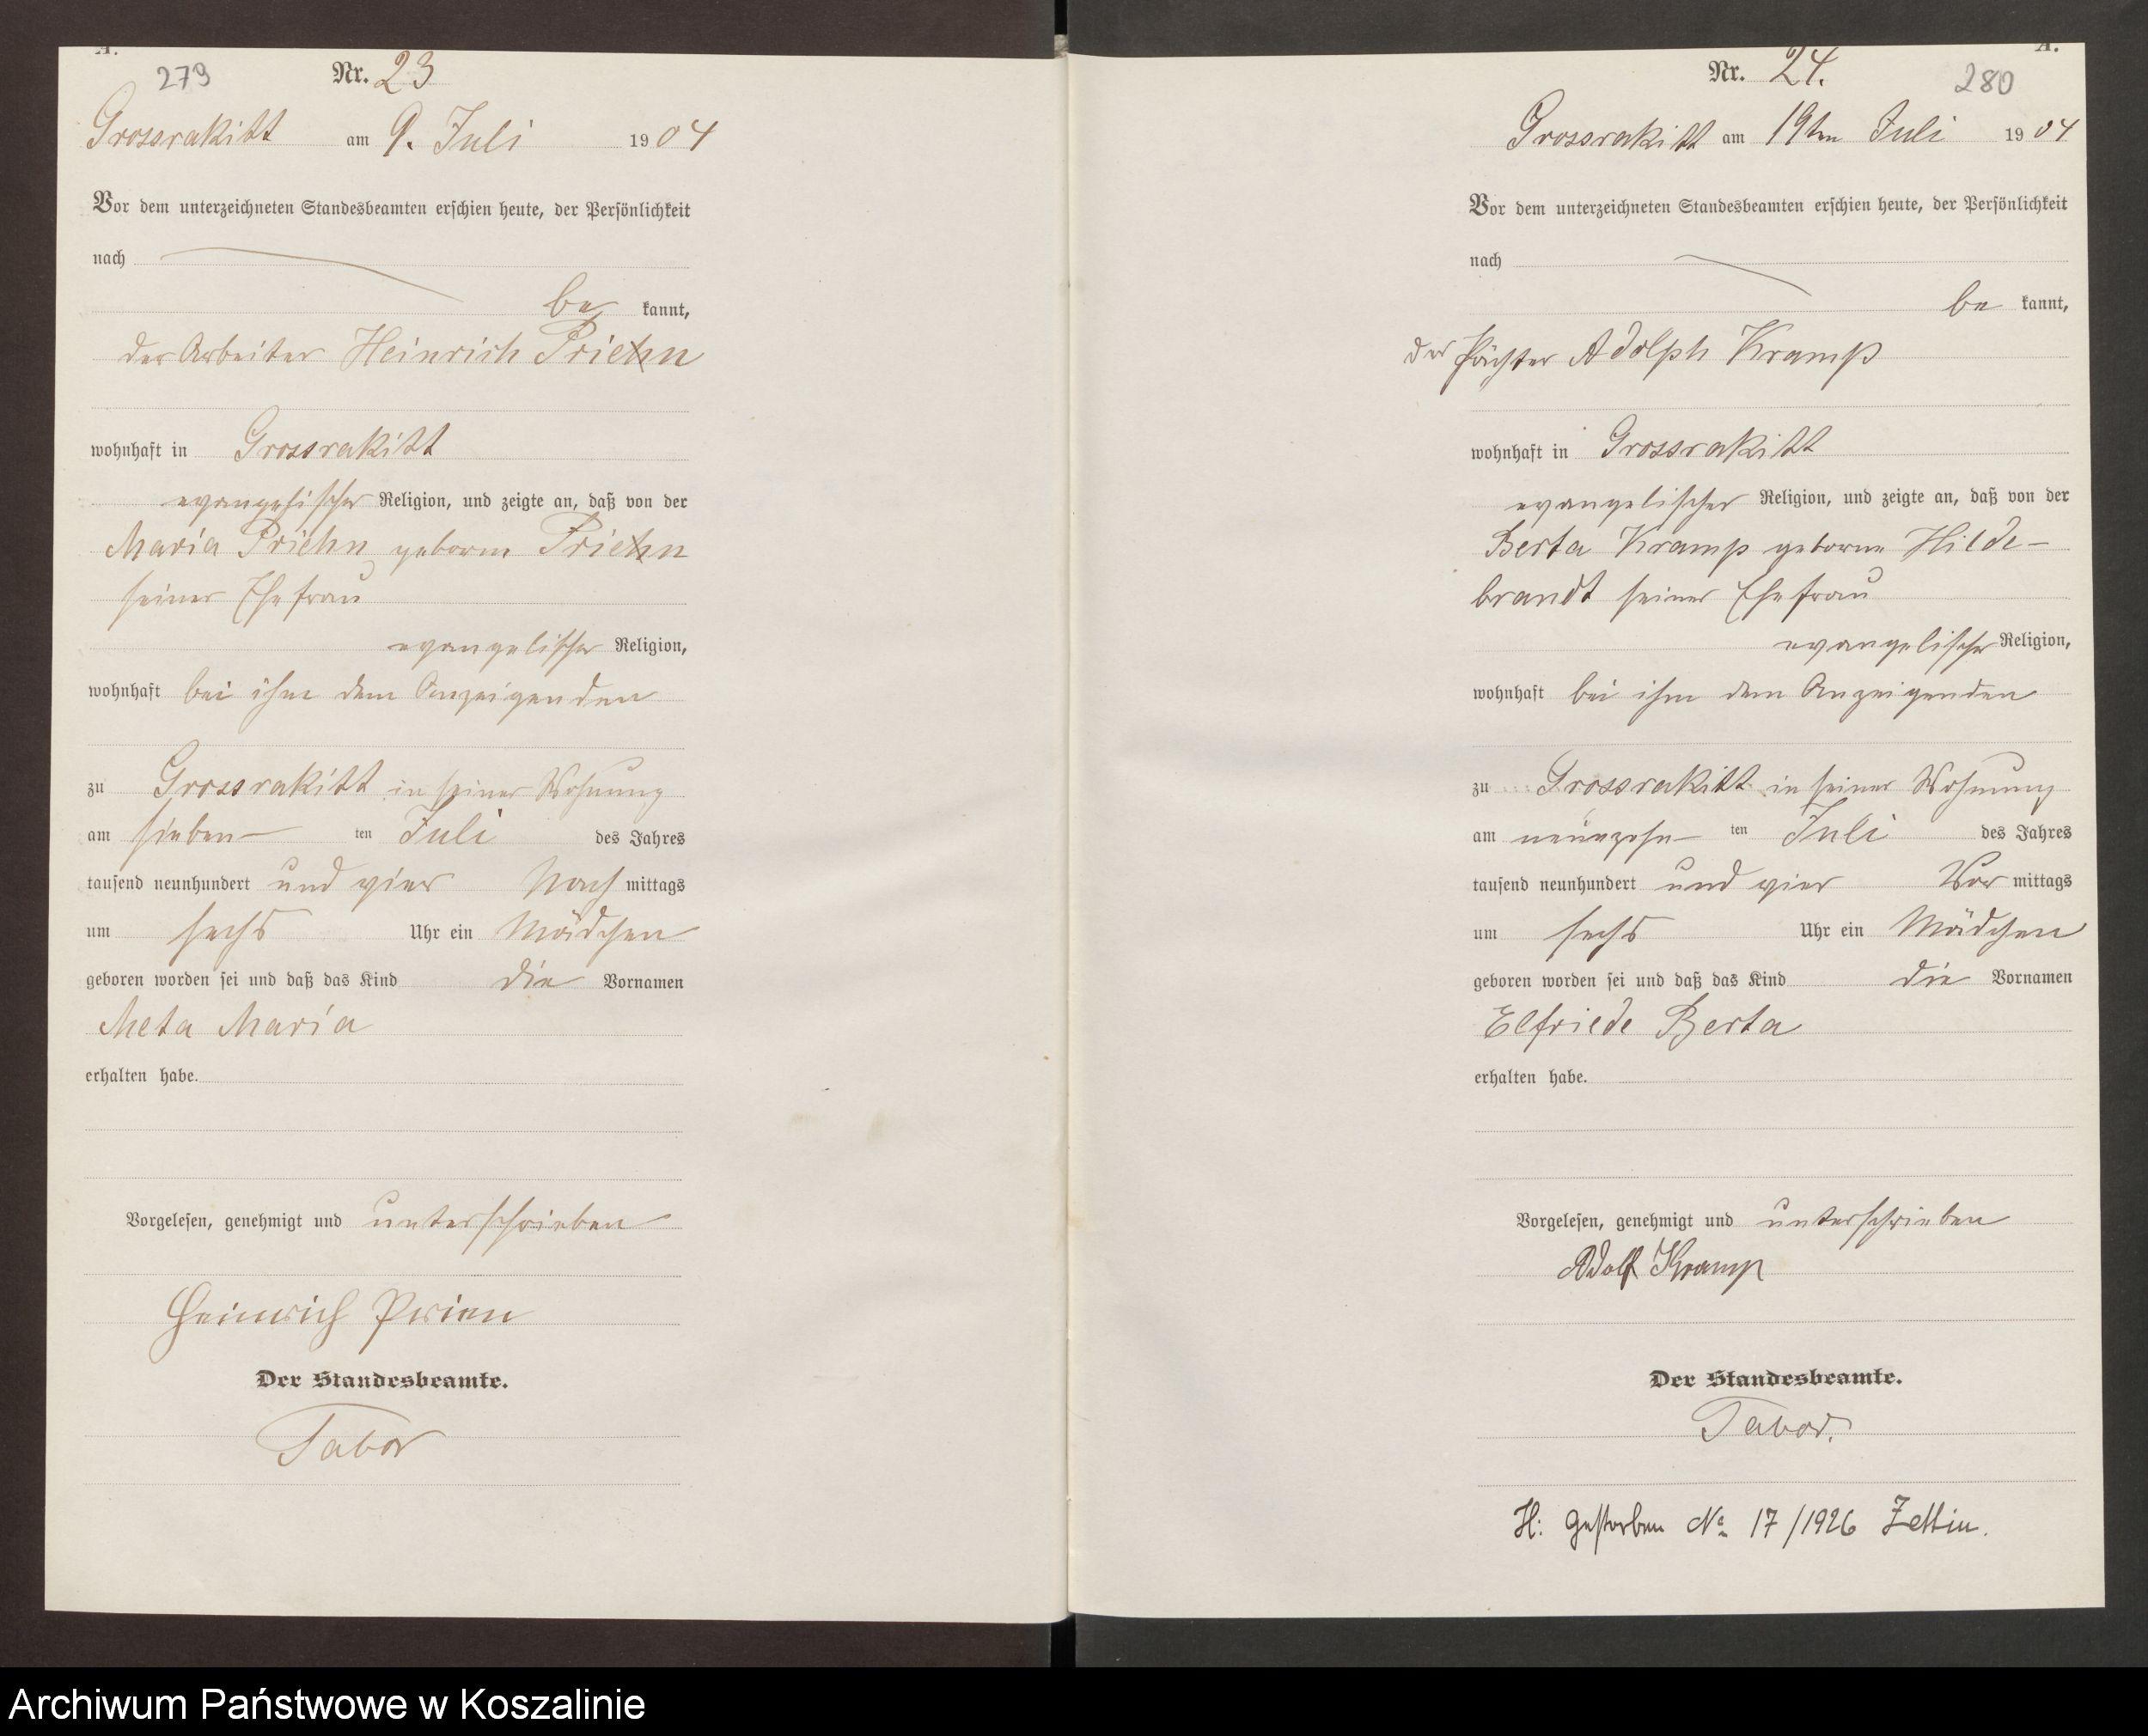 A.
279 Nr. 23
Grossrakitt am 9. Juli 1904
Vor dem unterzeichneten Standesbeamten erschien heute, der Persönlichkeit
nach
be kannt,
der Arbeiter Heinrich Priehn
wohnhaft in Grossrakitt
evangelischer Religion, und zeigte an, daß von der
Maria Priehn geborne Priehn
seiner Ehefrau
evangelischer Religion,
wohnhaft bei ihm dem Anzeigenden
zu Grossrakitt in seiner Wohnung
am sieben ten Juli des Jahres
tausend neunhundert und vier Nach mittags
um sechs Uhr ein Mädchen
geboren worden sei und daß das Kind die Vornamen
Meta Maria
erhalten habe.
Vorgelesen, genehmigt und unterschrieben
Heinrich Prien
Der Standesbeamte.
Tabor
A.
Nr. 24. 280
Grossrakitt am 19ten Juli 1904
Vor dem unterzeichneten Standesbeamten erschien heute, der Persönlichkeit
nach
be kannt,
der Pächter Adolph Kramp
wohnhaft in Grossrakitt
evangelischer Religion, und zeigte an, daß von der
Berta Kramp geborne Hilde-
brandt seiner Ehefrau
evangelischer Religion,
wohnhaft bei ihm dem Anzeigenden
zu Grossrakitt in seiner Wohnung
am neunzehn ten Juli des Jahres
tausend neunhundert und vier Vor mittags
um sechs Uhr ein Mädchen
geboren worden sei und daß das Kind die Vornamen
Elfriede Berta
erhalten habe.
Vorgelesen, genehmigt und unterschrieben
Adolf Kramp
Der Standesbeamte.
Tabor.
H: Gestorben No 17/1926 Zettin.
Archiwum Państwowe w Koszalinie